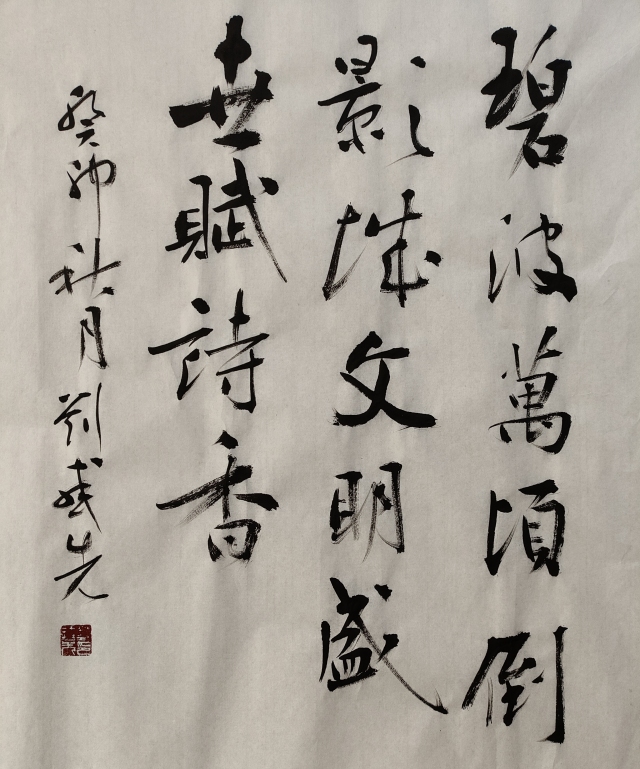 碧波萬頃倒
影城文明盛
世賦詩香
癸卯秋月劉成先